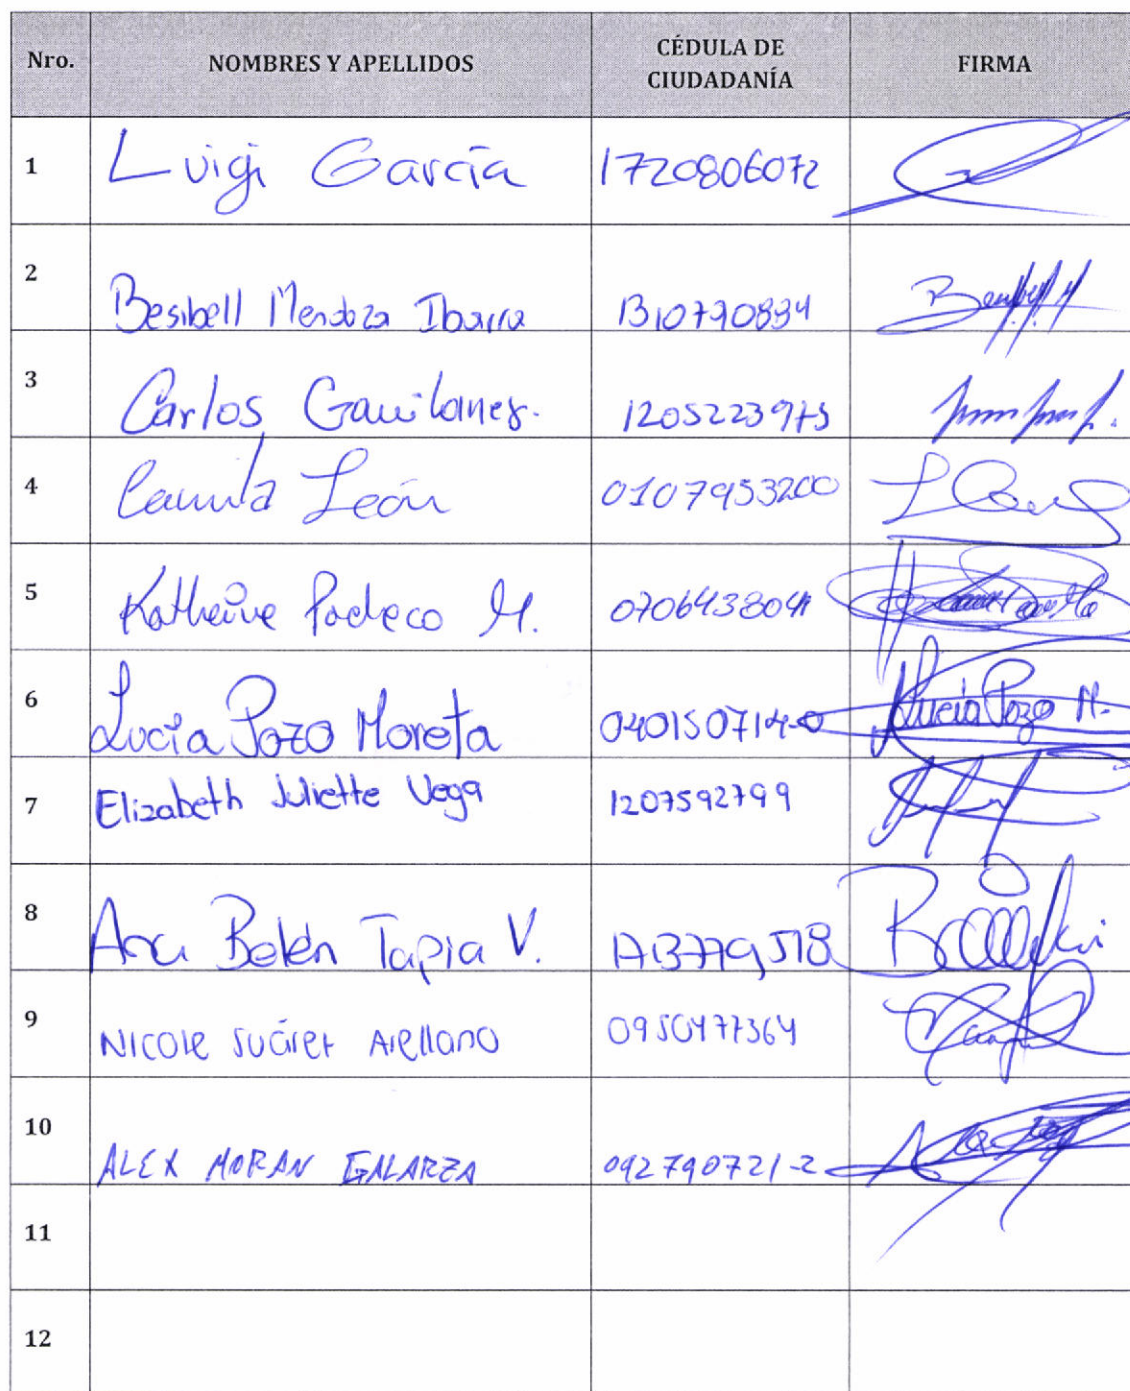 Nro. NOMBRES Y APELLIDOS CÉDULA DE CIUDADANÍA FIRMA
1 Luigi García 1720806072
2 Besibell Mendoza Ibarra 1310790834
3 Carlos Gavilanes. 1205223975
4 Camila León 0107953200
5 Katherine Pacheco M.
6 Lucía Pozo Moreta 040150714-0 Lucía Pozo M.
7 Elizabeth Juliette Vega 1207592799
8 Ana Belén Tapia V.
9 Nicole Suárez Arellano 0950477364
10 ALEX MORAN GALARZA 092790721-2
11
12